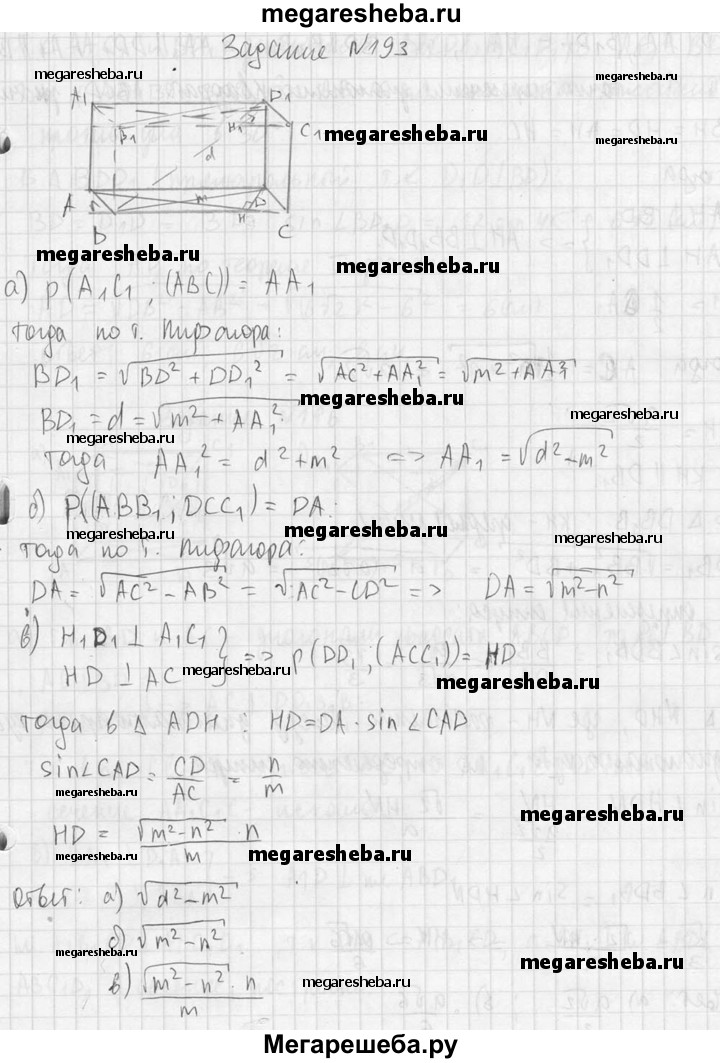 megaresheba.ru
Задание №193
megaresheba.ru
A1 D1
B1 H1 C1 megaresheba.ru megaresheba.ru
d
m
A
B H C
megaresheba.ru megaresheba.ru
а) p(A1C1 ; (ABC)) = AA1
тогда по т. Пифагора:
BD1 = √BD² + DD1² = √AC² + AA1² = √m² + AA1²
megaresheba.ru
BD1 = d = √m² + AA1² megaresheba.ru
megaresheba.ru
тогда AA1² = d² + m² => AA1 = √d² − m²
megaresheba.ru
б) P((ABB1 ; DCC1) = DA:
megaresheba.ru megaresheba.ru megaresheba.ru
тогда по т. Пифагора:
DA = √AC² − AB² = √AC² − CD² => DA = √m² − n²
в) H1D1 ⊥ A1C1 }
HD ⊥ AC } => p(DD1 ; (ACC1)) = HD
megaresheba.ru megaresheba.ru
тогда в Δ ADH : HD = DA · sin ∠CAD
sin∠CAD = CD/AC = n/m
megaresheba.ru megaresheba.ru
HD = √m² − n² · n / m
megaresheba.ru megaresheba.ru
Ответ: а) √d² − m²
б) √m² − n²
megaresheba.ru megaresheba.ru
в) √m² − n² · n / m
megaresheba.ru megaresheba.ru
Мегарешеба.ру